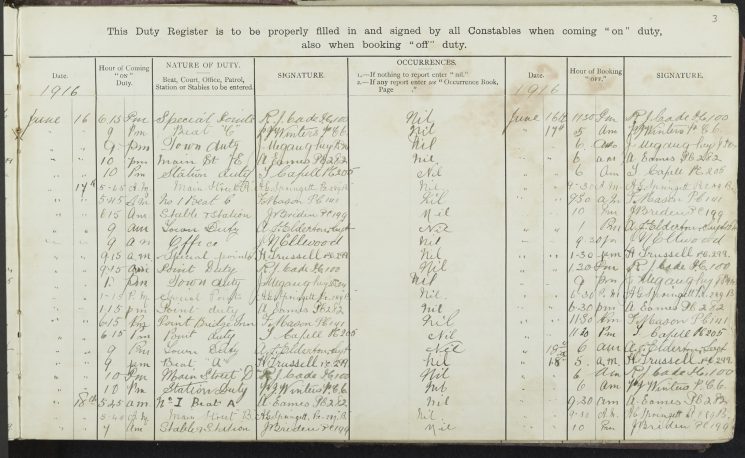 3
This Duty Register is to be properly filled in and signed by all Constables when coming "on" duty,
also when booking "off" duty.
Date. Hour of Coming "ON" Duty. NATURE OF DUTY. Beat, Court, Office, Patrol, Station or Stables to be entered. SIGNATURE. OCCURRENCES. 1.—If nothing to report enter "nil." 2.—If any report enter see "Occurrence Book, Page ." Date. Hour of Booking "OFF." SIGNATURE.
1916 1916
June 16 6.15 Pm Special Points R J Cade Pc 100 Nil June 16th 11.30 Pm R J Cade Pc 100
" " 9 Pm Beat "C" Winters Pc 66 Nil " 17th 5 am Winters Pc 66
" " 9 pm Town duty J Megaughey Nil " " 6 am J Megaughey
" " 10 pm Main St A Eames Pc 282 Nil " " 6 am A Eames Pc 282
" " 10 Pm Station duty Cafell Pc 205 Nil " " 6 am Cafell Pc 205
" 17th 5-45 a.m Main Street Springett Nil " " 9-30 a.m Springett
" " 5-45 a.m No 1 Beat Mason Pc 141 Nil " " 9.30 a.m Mason Pc 141
" " 6 15 am Stable & Station J Briden Pc 199 Nil " " 10 Pm J Briden Pc 199
" " 9 am Town Duty A Elderton Nil " " 1 Pm A Elderton
" " 9 a.m Office J N Ellwood Nil " " 9.30 pm J N Ellwood
" " 9.15 a.m Special points H Trussell Pc 249 Nil " " 1-30 pm H Trussell Pc 249
" " 9-45 am Point Duty R J Cade Pc 100 Nil " " 1.30 Pm R J Cade Pc 100
" " 1 pm Town duty J Megaughey Nil " " 9 pm J Megaughey
" " 1-15 P.m Special Points Springett Nil " " 6-30 P.m Springett
" " 1 15 pm Point duty A Eames Pc 282 Nil " " 6-30 pm A Eames Pc 282
" " 6/15 Pm Point Bridge Inn Mason Pc 141 Nil " " 11.30 Pm Mason Pc 141
" " 6 15 Pm Point duty Cafell Pc 205 Nil " " 11 30 Pm Cafell Pc 205
" " 9 Pm Town Duty A Elderton Nil " 18th 6 am A Elderton
" " 9 pm Beat "A" H Trussell Pc 249 Nil " 18 5 a.m H Trussell Pc 249
" " 10 Pm Main Street R J Cade Pc 100 Nil " " 6 am R J Cade Pc 100
" " 10 Pm Station Duty Winters Pc 66 Nil " " 6 am Winters Pc 66
" 18th 5.45 am No I Beat A A Eames Pc 282 Nil " " 9.30 am A Eames Pc 282
" " 5-40 a.m Main Street B Springett Nil " " 9-30 a.m Springett
" " 7 am Stable & Station J Briden Pc 199 Nil " " 10 Pm J Briden Pc 199